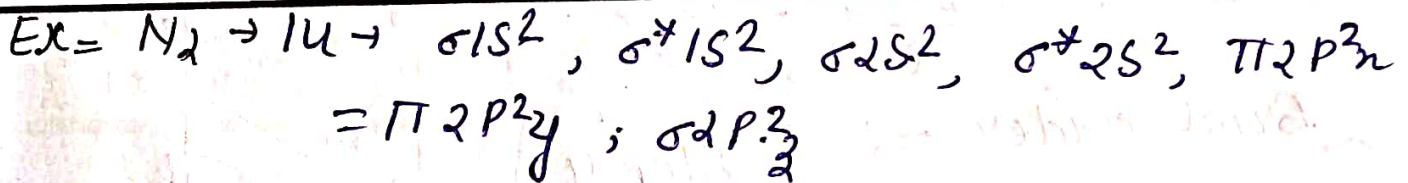 Ex= N₂ → 14 → σ1s², σ*1s², σ2s², σ*2s², π2p²x
= π2p²y ; σ2p²z